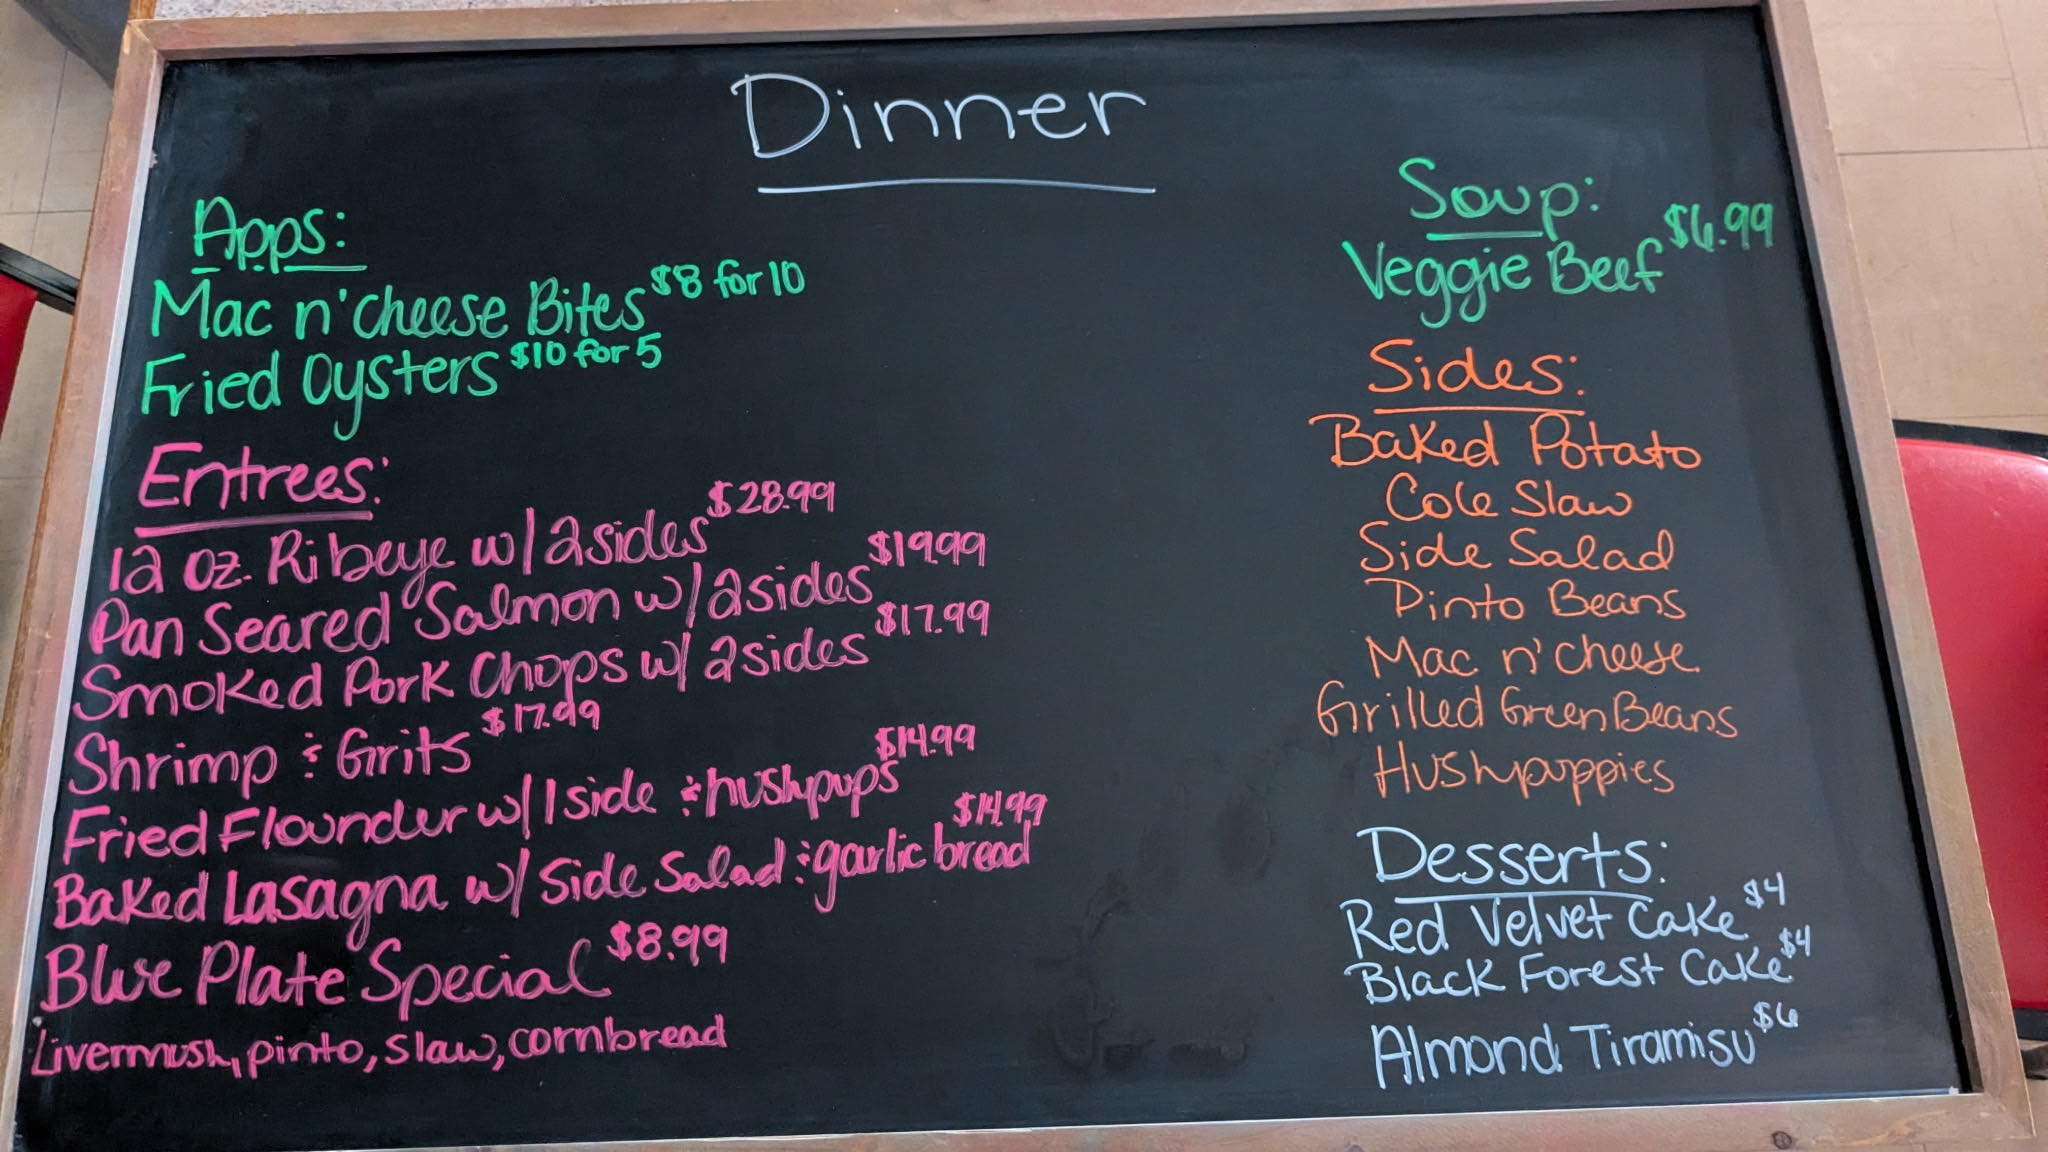 Dinner
Apps:
Mac n' cheese Bites $8 for 10
Fried Oysters $10 for 5
Entrees:
12 oz. Ribeye w/ 2 sides $28.99
Pan Seared Salmon w/ 2 sides $19.99
Smoked Pork Chops w/ 2 sides $17.99
Shrimp & Grits $17.99
Fried Flounder w/ 1 side & hushpups $14.99
Baked Lasagna w/ Side Salad & garlic bread $14.99
Blue Plate Special $8.99
Livermush, pinto, slaw, cornbread
Soup:
Veggie Beef $6.99
Sides:
Baked Potato
Cole Slaw
Side Salad
Pinto Beans
Mac n' cheese
Grilled Green Beans
Hushpuppies
Desserts:
Red Velvet Cake $4
Black Forest Cake $4
Almond Tiramisu $6